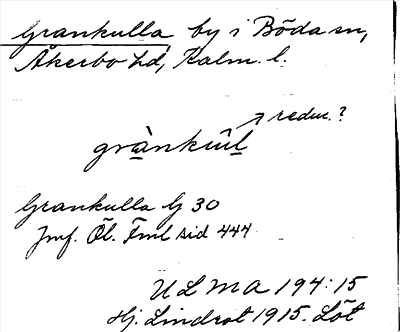 Grankulla by i Böda sn,
Åkerbo hd, Kalm. l.
↗ reduc.?
grà̲nkūl̲
Grankulla G 30
Jmf. Öl. Fml sid 444
ULMA 194:15
Hj. Lindrot 1915. Löt